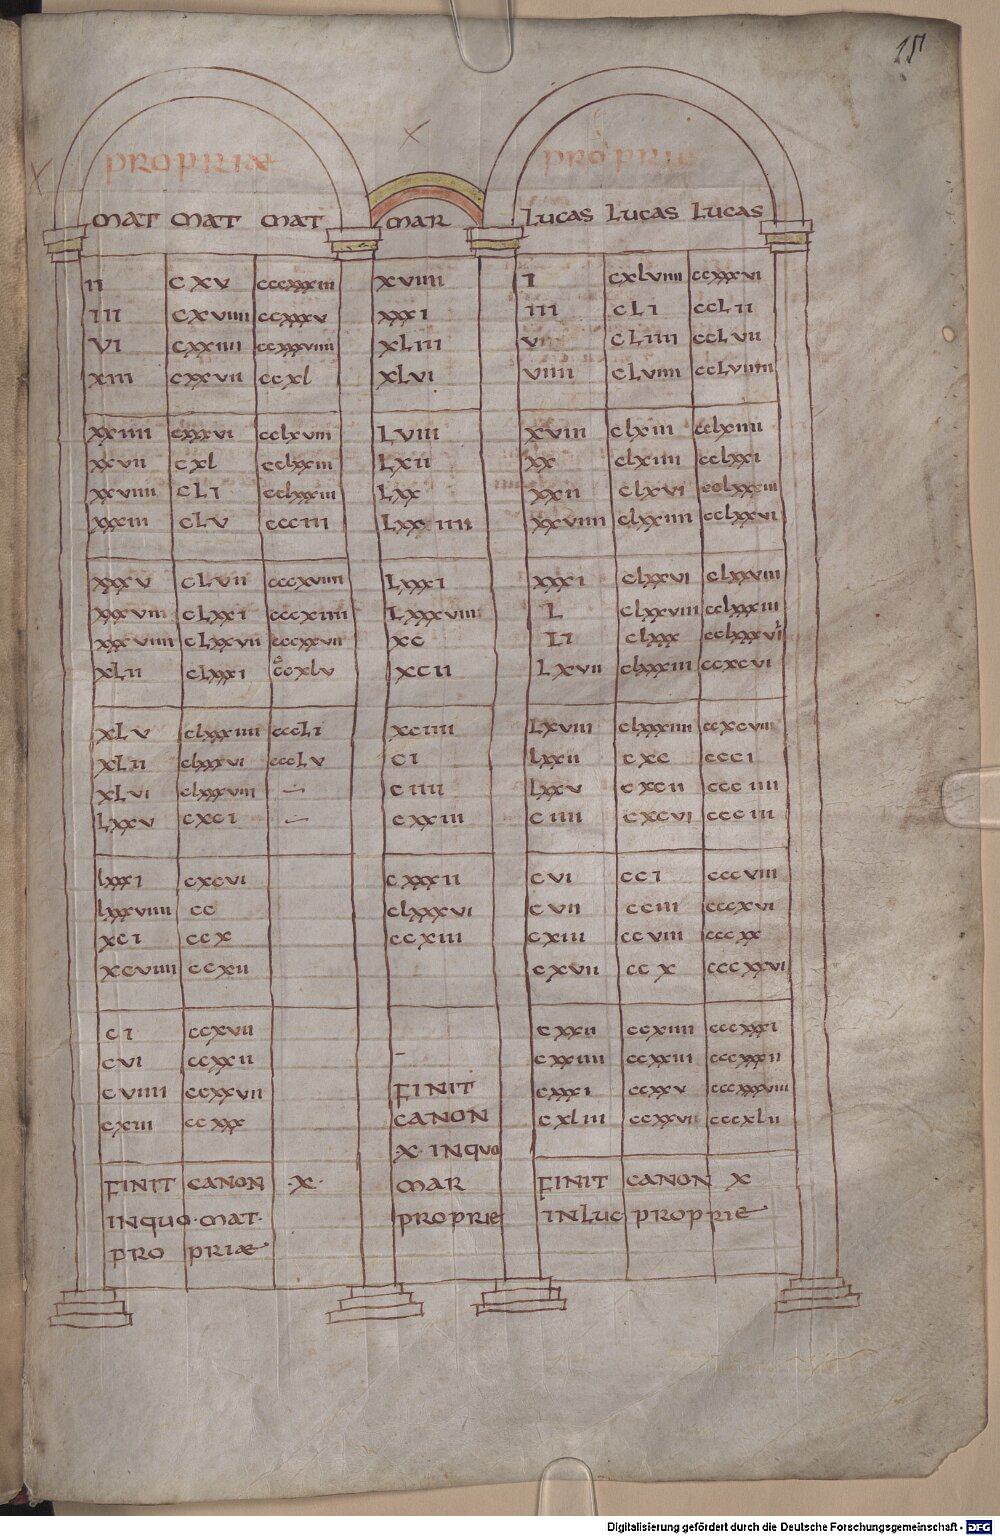 15
PROPRIAE PROPRIE
MAT MAT MAT MAR LUCAS LUCAS LUCAS
II CXV CCCXXIII XVIIII I CXLVIIII CCXXXVI
III CXVIIII CCXXXV XXXI III CLI CCLII
VI CXXIIII CCXXXVIIII XLIII V CLIIII CCLVII
XIII CXXVII CCXL XLVI VIIII CLVIIII CCLVIIII
XXIIII CXXXVI CCLXVIII LVIII XVIII CLXIII CCLXIIII
XXVII CXL CCLXXIII LXII XX CLXIIII CCLXXI
XXVIIII CLI CCLXXXIII LXX XXII CLXVI CCLXXIII
XXXIII CLV CCCIII LXXIIII XXVIIII CLXXIIII CCLXXVI
XXXV CLVII CCCXVIIII LXXXI XXXI CLXXVI CLXXVIII
XXXVIII CLXXI CCCXIIII LXXXVIII L CLXXVIII CCLXXXIII
XXXVIIII CLXXVII CCCXXVII XC LI CLXXX CCLXXXVI
XLII CLXXXI CCCXLV XCII LXVII CLXXXIII CCXCVI
XLV CLXXXIIII CCCLI XCIIII LXVIII CLXXXIIII CCXCVIII
XLII CLXXXVI CCCLV CI LXXII CXC CCCI
XLVI CLXXXVIII — CIIII LXXV CXCII CCCIIII
LXXV CXCI — CXXIII CIIII CXCVI CCCIII
LXXXI CXCVI CXXXII CVI CCI CCCVIII
LXXXVIIII CC CLXXXVI CVII CCIII CCCXVI
XCI CCX CCXIII CXIII CCVIII CCCXX
XCVIIII CCXII CXVII CCX CCCXXVI
CI CCXVII CXXII CCXIIII CCCXXXI
CVI CCXXII — CXXIIII CCXXIII CCCXXXII
CVIIII CCXXVII FINIT CXXXI CCXXV CCCXXXVIII
CXIII CCXXX CANON CXLIII CCXXVII CCCXLII
X· INQUO
FINIT CANON ·X· MAR FINIT CANON X
INQUO·MAT· PROPRIE INLUC PROPRIE
PROPRIAE
Digitalisierung gefördert durch die Deutsche Forschungsgemeinschaft - DFG